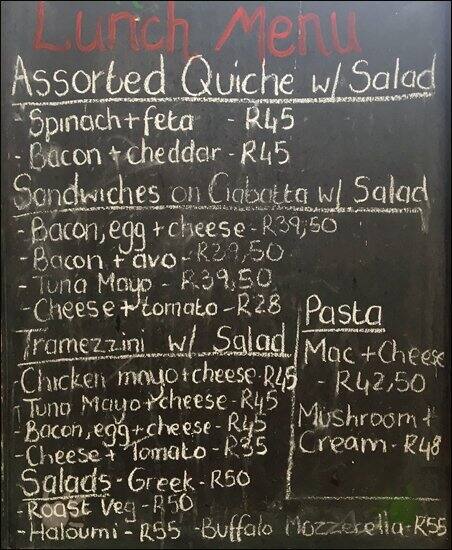 Lunch Menu
Assorbed Quiche w/ Salad
- Spinach + feta - R45
- Bacon + cheddar - R45
Sandwiches on Ciabatta w/ Salad
- Bacon, egg + cheese - R39,50
- Bacon + avo - R39,50
- Tuna Mayo - R39,50
- Cheese + tomato - R28
Tramezzini w/ Salad
- Chicken mayo + cheese - R45
- Tuna Mayo + cheese - R45
- Bacon, egg + cheese - R45
- Cheese + Tomato - R35
Salads - Greek - R50
- Roast Veg - R50
- Haloumi - R55 - Buffalo Mozzecella - R55
Pasta
Mac + Cheese
- R42,50
Mushroom +
Cream - R48